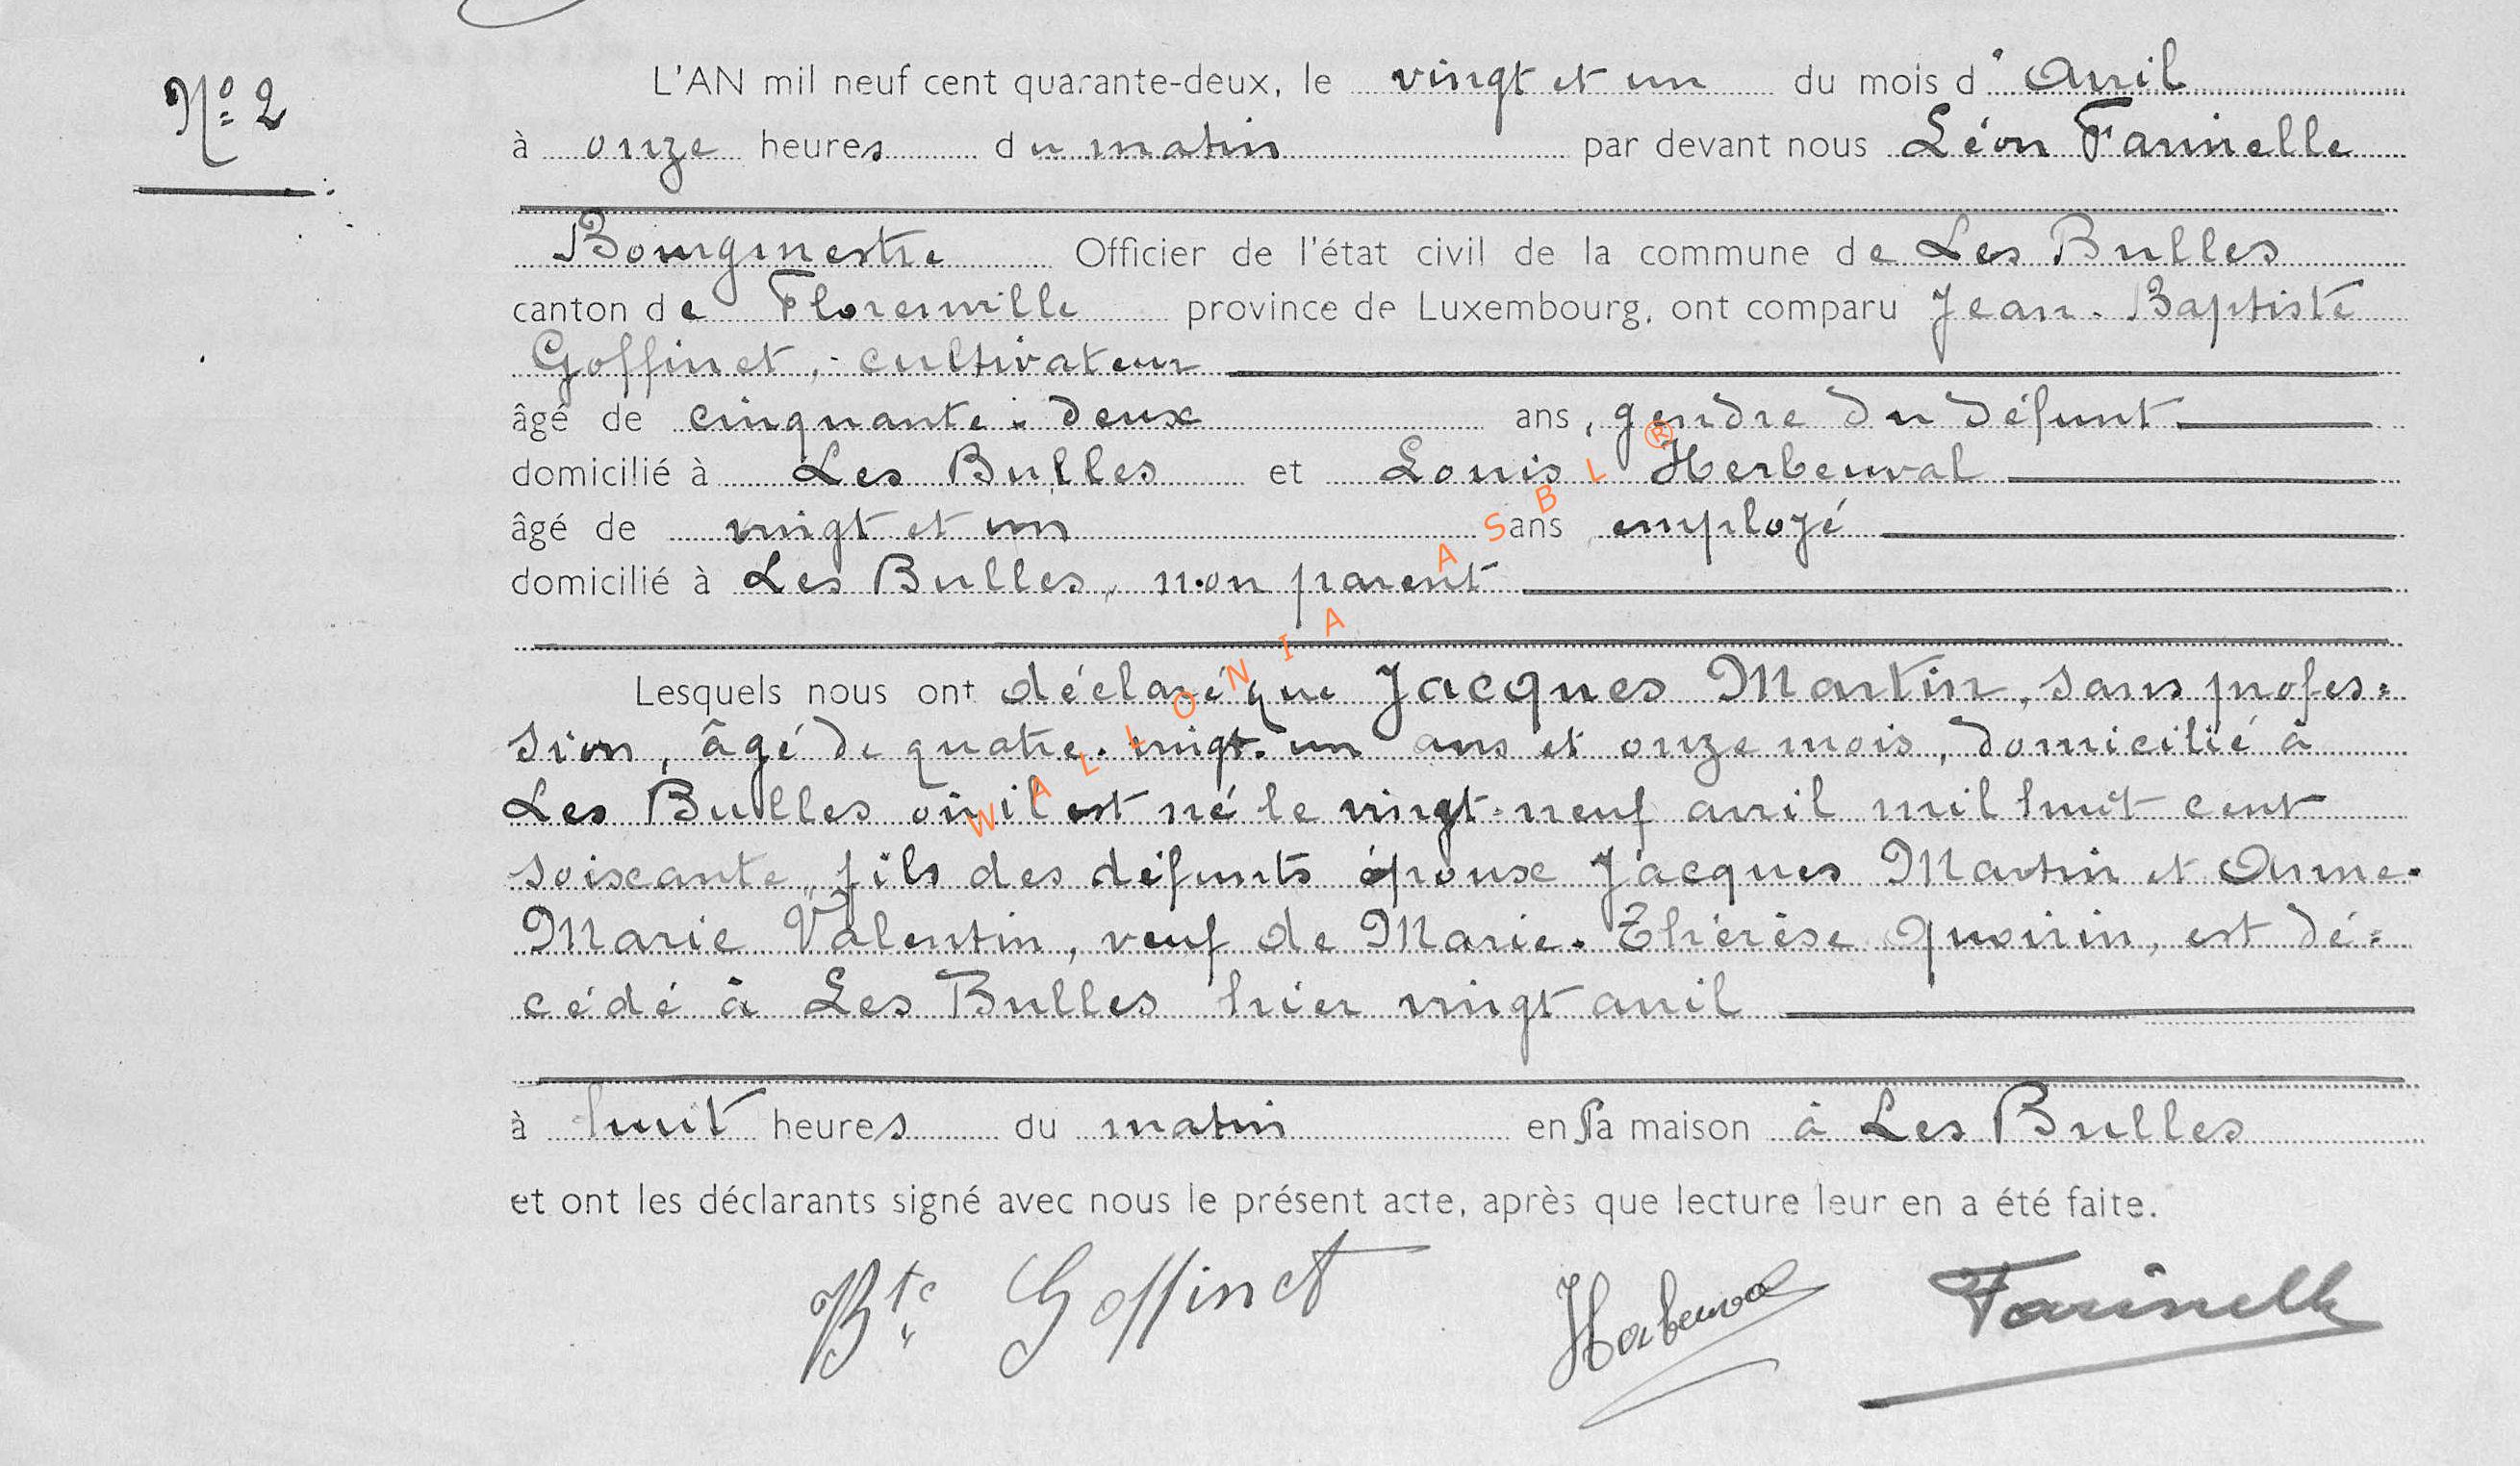 N° 2
L'AN mil neuf cent quarante-deux, le vingt et un du mois d'Avril
à onze heures du matin par devant nous Léon Farinelle
Bourgmestre Officier de l'état civil de la commune de Les Bulles
canton de Florenville province de Luxembourg, ont comparu Jean-Baptiste
Goffinet, cultivateur
âgé de cinquante-deux ans, gendre du défunt
domicilié à Les Bulles et Louis Herbeuval
âgé de vingt et un ans employé
domicilié à Les Bulles, non parent
Lesquels nous ont déclaré que Jacques Martin, sans profes=
sion, âgé de quatre-vingt-un ans et onze mois, domicilié à
Les Bulles où il est né le vingt-neuf avril mil huit cent
soixante, fils des défunts époux Jacques Martin et Anne-
Marie Valentin, veuf de Marie-Thérèse Quoirin, est dé=
cédé à Les Bulles hier vingt avril
à huit heures du matin en sa maison à Les Bulles
et ont les déclarants signé avec nous le présent acte, après que lecture leur en a été faite.
Bte Goffinet Herbeuval Farinelle
WALLONIA ASBL ®